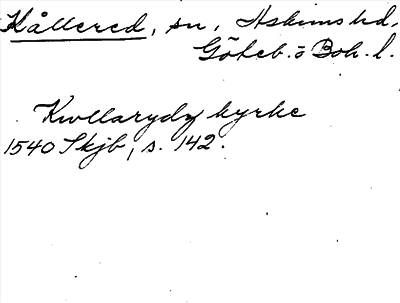 Kållered, sn, Askims hd.
Göteb. o Boh. l.
Kwllarydz kyrke
1540 Skjb, s. 142.